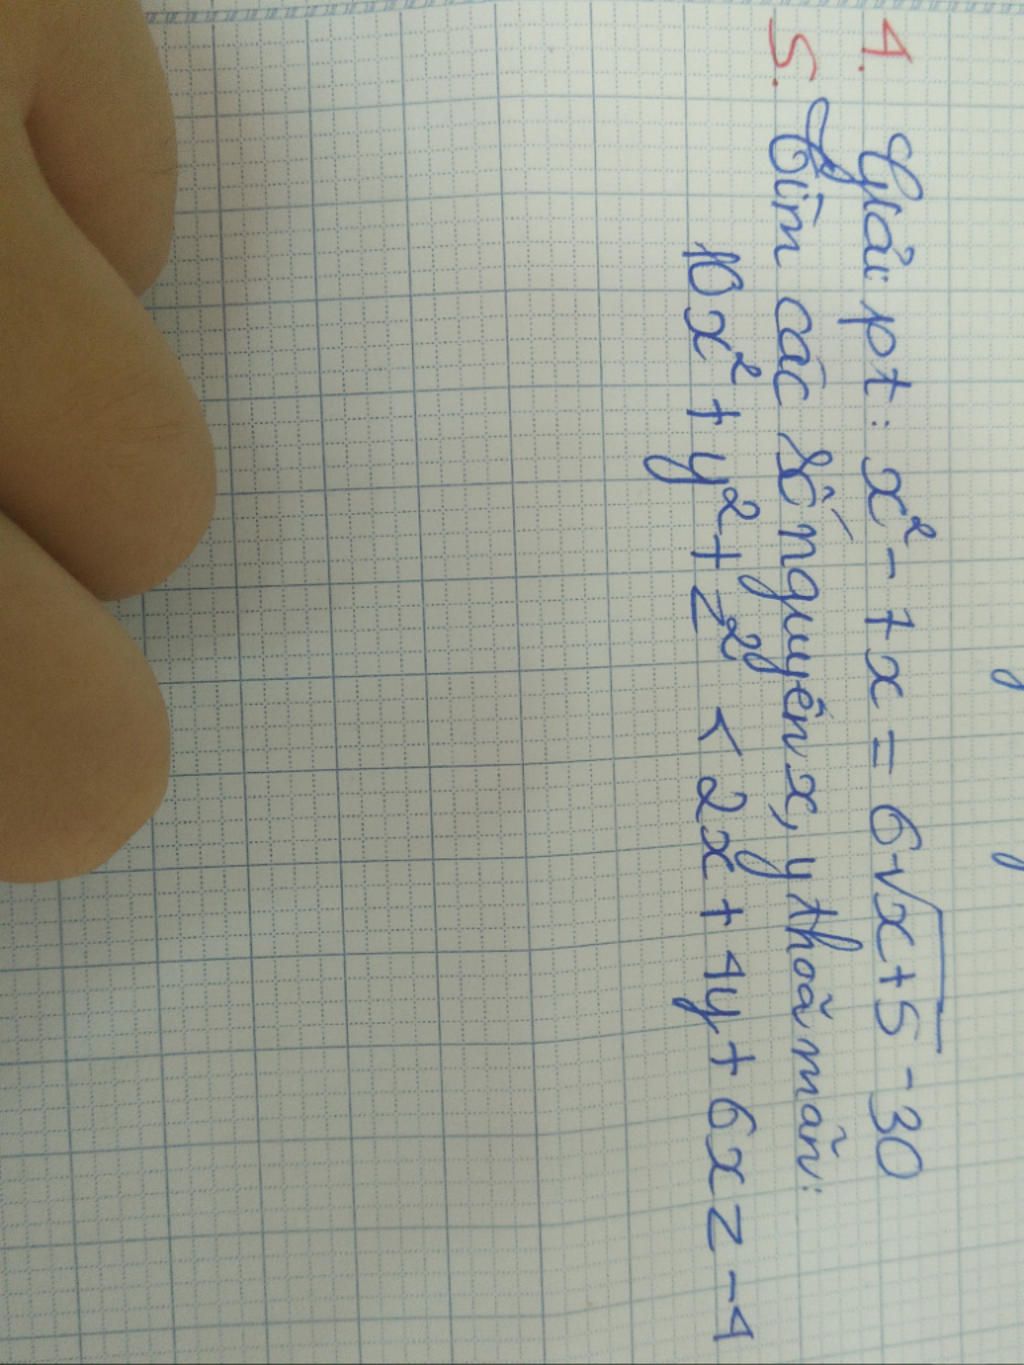 4. Giải pt: x² - 7x = 6√(x+5) - 30
5. Tìm các số nguyên x, y thoã mãn:
10x² + y² + z² < 2x + 4y + 6xz - 4